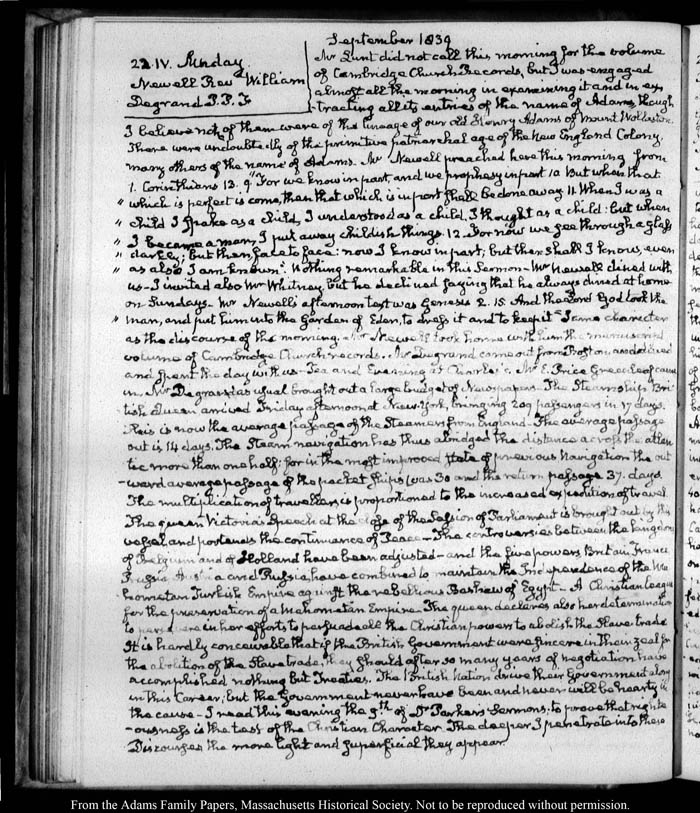 September 1839
22. IV. Sunday
Newell Rev William
Degrand P. P. F.
Mr Lunt did not call this morning for the volume
of Cambridge Church Records, but I was engaged
almost all the morning in examining it and in ex
-tracting all its entries of the name of Adams, though
I believe not of them were of the lineage of our old Henry Adams of Mount Wollaston.
There were undoubtedly of the primitive patriarchal age of the New England Colony,
many others of the name of Adams. Mr Newell preached here this morning from
1. Corinthians 13. 9 "For we know in part, and we prophesy in part 10 But when that
" which is perfect is come, then that which is in part shall be done away 11. When I was a
" child I spake as a child, I understood as a child, I thought as a child: but when
" I became a man, I put away childish things. 12. For now we see through a glass
" darkly; but then face to face: now I know in part; but then shall I know, even
" as also I am known". Nothing remarkable in this Sermon— Mr Newell dined with
us— I invited also Mr Whitney, but he declined saying that he always dined at home
on Sundays— Mr Newell's afternoon text was Genesis 2. 15. And the Lord God took the
" man, and put him into the Garden of Eden, to dress it and to keep it" Same character
as the discourse of the morning. Mr Newell took home with him the manuscript
volume of Cambridge Church records. Mr Degrand came out from Boston, as
and spent the day with us— Tea and Evening at Charles's. Mr E. Price Greenleaf came
in. Mr Degrand as usual brought out a large budget of Newspapers— The Steamship Bri
tish Queen arrived Friday afternoon at New-York, bringing 209 passengers in 17 days.
This is now the average passage of the Steamers from England— The average passage
out is 14 days. The Steam navigation has thus abridged the distance across the atlan
tic more than one half; for in the most improved state of previous Navigation the out
-ward average passage of the packet ships was 30 and the return passage 37. days
The multiplication of travellers is proportioned to the increased expedition of travel.
The queen Victoria's Speech at the close of the Session of Parliament is brought out by this
vessel and portends the continuance of Peace— The controversies between the kingdoms
of Belgium and of Holland have been adjusted— and the five powers Britain, France,
Prussia Austria and Russia, have combined to maintain the Independence of the Ma
hometan Turkish Empire against the rebellious Bashaw of Egypt— A Christian league
for the preservation of a Mahometan Empire— The queen declares also her determination
to persevere in her efforts to persuade all the Christian powers to abolish the Slave trade
It is hardly conceivable that if the British Government were sincere in their zeal for
the abolition of the Slave trade, they should after so many years of negotiation have
accomplished nothing but Treaties. The British Nation drive their Government along
in this Career; but the Government never have been and never will be hearty in
the cause— I read this evening the 9th of Dr Parker's Sermons; to prove that righte
-ousness is the test of the Christian Character. The deeper I penetrate into these
Discourses the more light and superficial they appear.
From the Adams Family Papers, Massachusetts Historical Society. Not to be reproduced without permission.